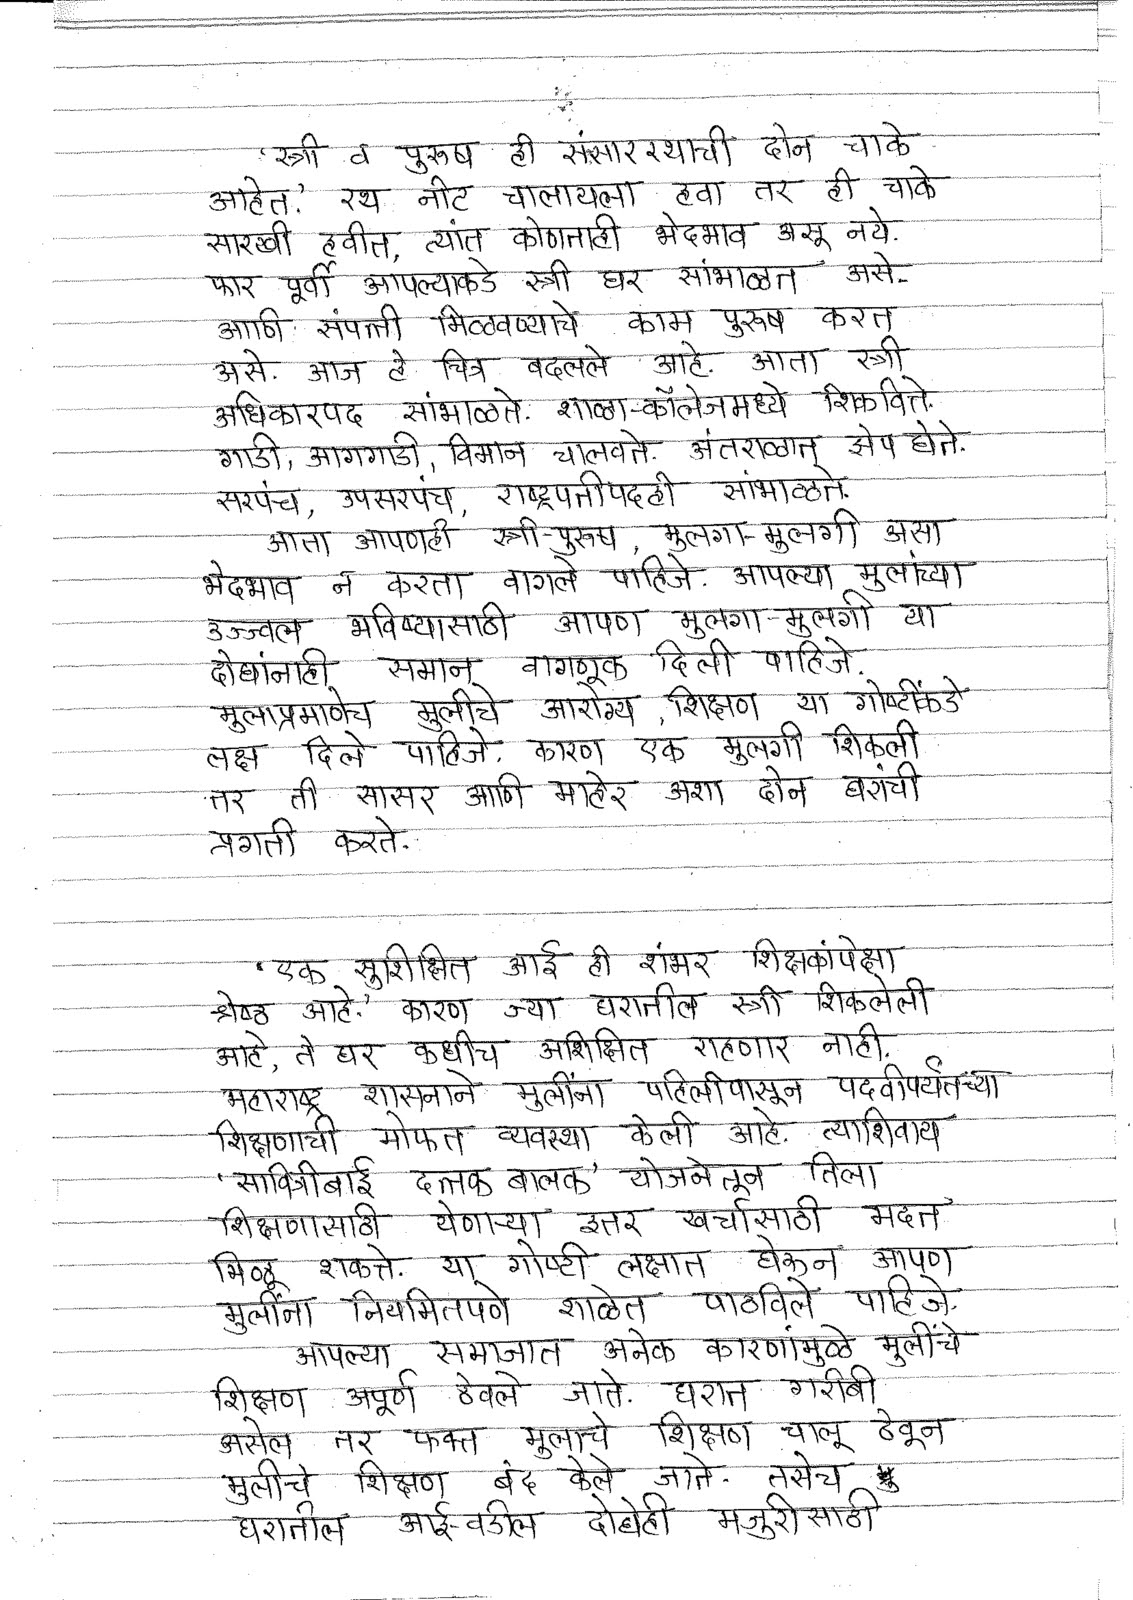 'स्त्री व पुरूष ही संसाररथाची दोन चाके
आहेत.' रथ नीट चालायला हवा तर ही चाके
सारखी हवीत, त्यांत कोणताही भेदभाव असू नये.
फार पूर्वी आपल्याकडे स्त्री घर सांभाळत असे.
आणि संपत्ती मिळवण्याचे काम पुरूष करत
असे. आज हे चित्र बदलले आहे. आता स्त्री
अधिकारपद सांभाळते. शाळा-कॉलेजमध्ये शिकविते.
गाडी, आगगाडी, विमान चालवते. अंतराळात झेप घेते.
सरपंच, उपसरपंच, राष्ट्रपतीपदही सांभाळते.
आता आपणही स्त्री-पुरूष, मुलगा-मुलगी असा
भेदभाव न करता वागले पाहिजे. आपल्या मुलांच्या
उज्ज्वल भविष्यासाठी आपण मुलगा-मुलगी या
दोघांनाही समान वागणूक दिली पाहिजे.
मुलाप्रमाणेच मुलीचे आरोग्य, शिक्षण या गोष्टींकडे
लक्ष दिले पाहिजे. कारण एक मुलगी शिकली
तर ती सासर आणि माहेर अशा दोन घरांची
प्रगती करते.
'एक सुशिक्षित आई ही शंभर शिक्षकांपेक्षा
श्रेष्ठ आहे.' कारण ज्या घरातील स्त्री शिकलेली
आहे, ते घर कधीच अशिक्षित राहणार नाही.
महाराष्ट्र शासनाने मुलींना पहिलीपासून पदवीपर्यंतच्या
शिक्षणाची मोफत व्यवस्था केली आहे. त्याशिवाय
'सावित्रीबाई दत्तक बालक' योजनेतून तिला
शिक्षणासाठी येणाऱ्या इतर खर्चासाठी मदत
मिळू शकते. या गोष्टी लक्षात घेऊन आपण
मुलींना नियमितपणे शाळेत पाठविले पाहिजे.
आपल्या समाजात अनेक कारणांमुळे मुलींचे
शिक्षण अपूर्ण ठेवले जाते. घरात गरीबी
असेल तर फक्त मुलाचे शिक्षण चालू ठेवून
मुलीचे शिक्षण बंद केले जाते. तसेच
घरातील आई-वडील दोघेही मजुरीसाठी